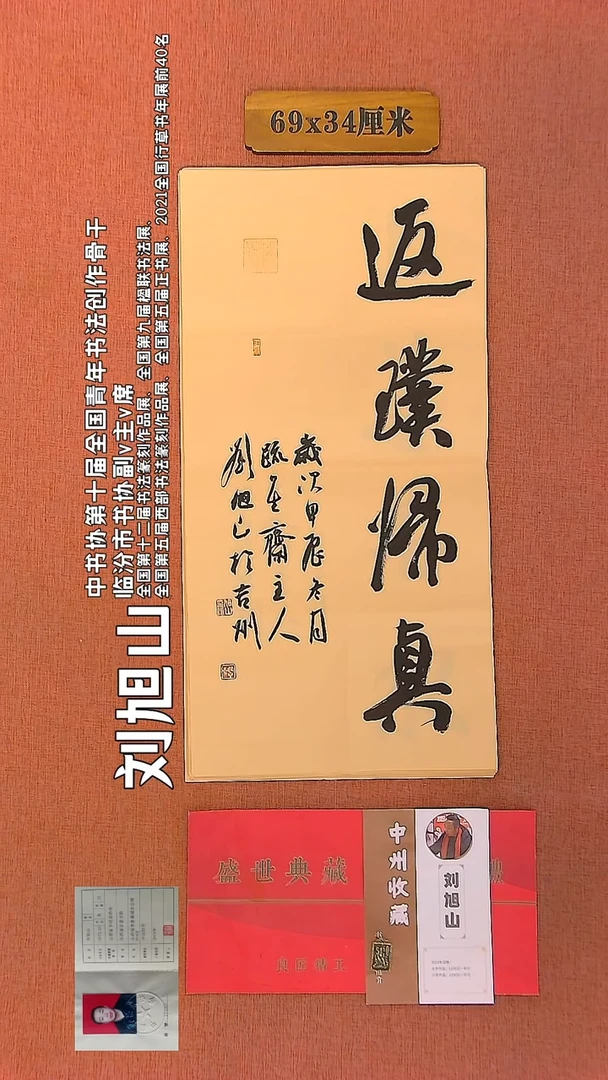 69x34厘米
返璞歸真
歲次甲辰冬月
疏星齋主人
劉旭山於吉州
刘旭山
中书协第十届全国青年书法创作骨干
临汾市书协副v主v席
全国第十二届书法篆刻作品展、全国第九届楹联书法展、
全国第五届西部书法篆刻作品展、全国第五届正书展、2021全国行草书年展前40名
盛世典藏
良匠精工
中州收藏
刘旭山